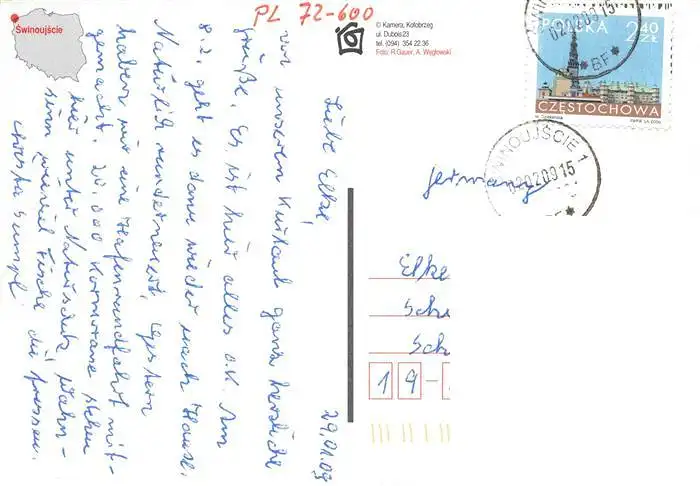 Świnoujście
PL 72-600
© Kamera, Kołobrzeg
ul. Dubois 23
tel. (094) 354 22 36
Foto: R.Gauer, A. Węgłowski
POLSKA 2,40 ZŁ
CZĘSTOCHOWA
ŚWINOUJŚCIE 1
020209 15
BF
29.01.09
Liebe Elke,
von unserem Kurlaub ganz herzliche
Grüße. Es ist hier alles o.k. Am
8.2. geht es dann wieder nach Hause.
Natürlich runderneuert. Gestern
haben wir eine Hafenrundfahrt mit-
gemacht. 20.000 Kormorane stehen
hier unter Naturschutz. Wahn-
sinn wieviel Fische die fressen.
Christa
Germany
Elke
Sche
Sch
19-